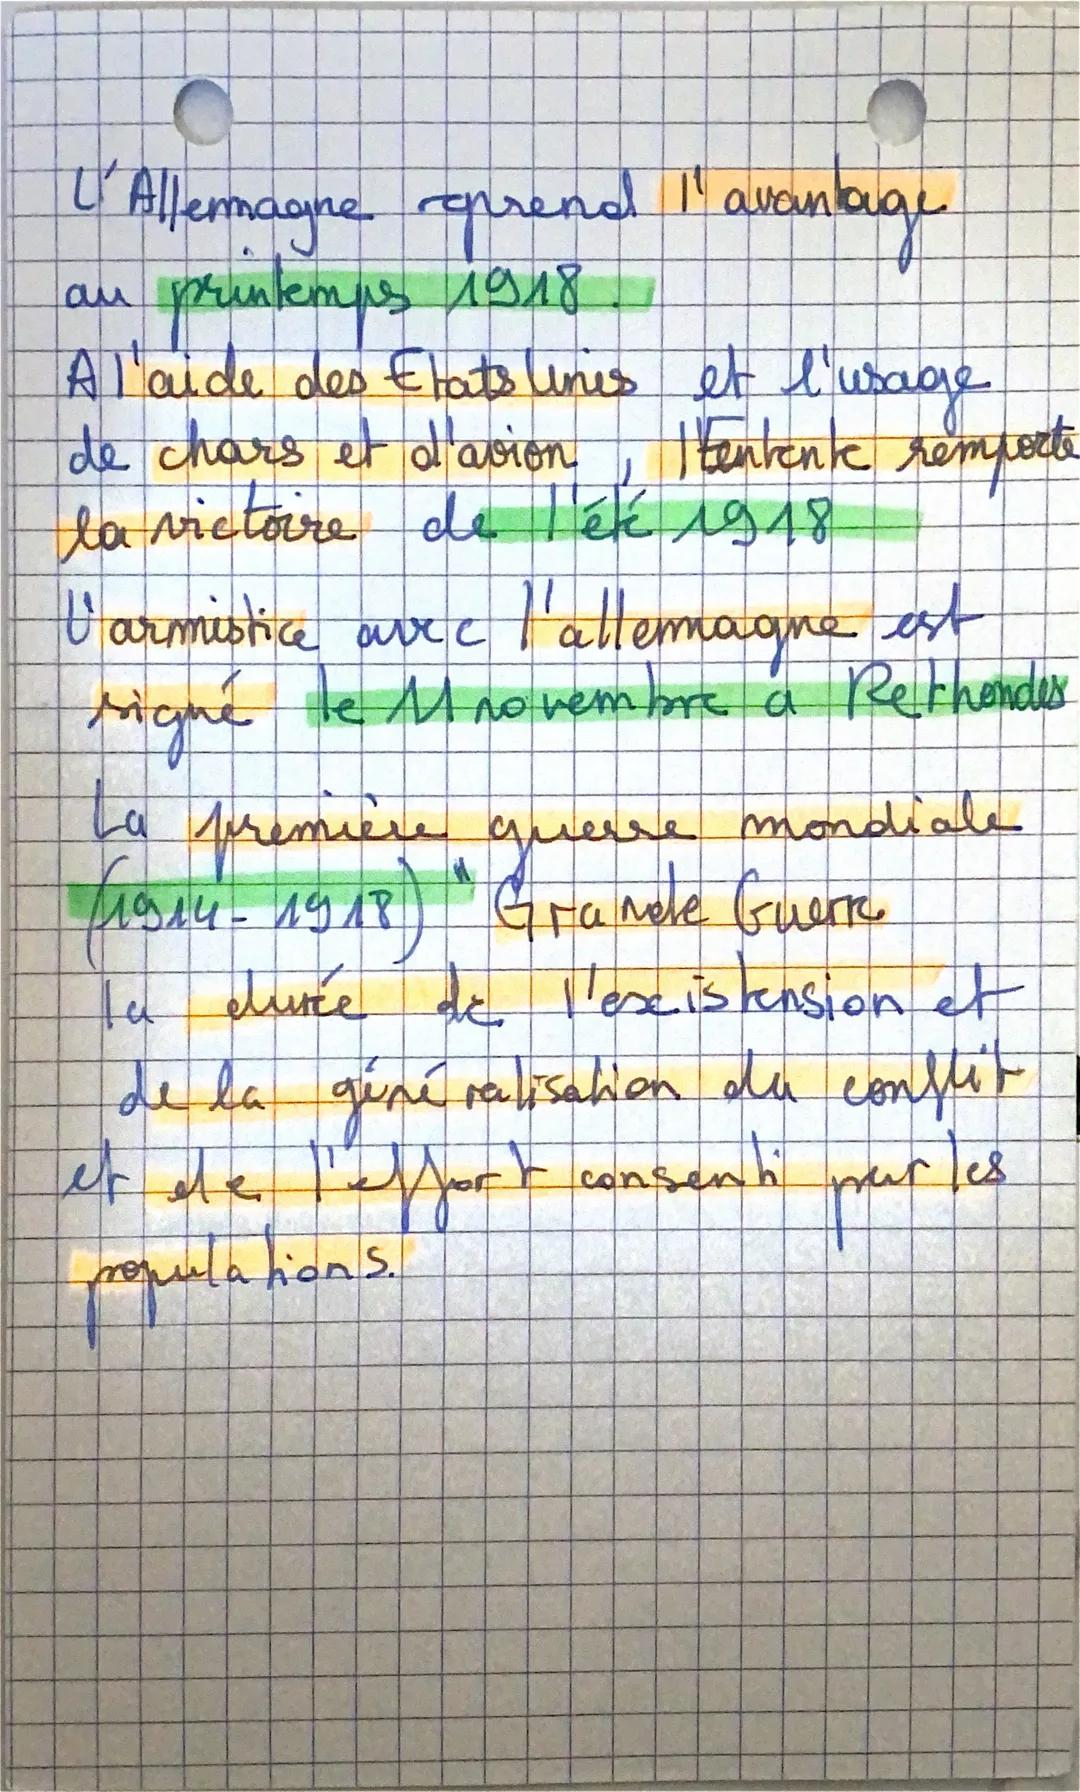 L'Allemagne reprend l'avantage
au printemps 1918.
A l'aide des Etats Unis et l'usage
de chars et d'avion, l'Entente remporte
la victoire de l'été 1918
L'armistice avec l'allemagne est
signé le 11 novembre a Rethondes
La première guerre mondiale
(1914-1918) " Grande Guerre
la durée de l'existension et
de la généralisation du conflit
et de l'effort consenti par les
populations.